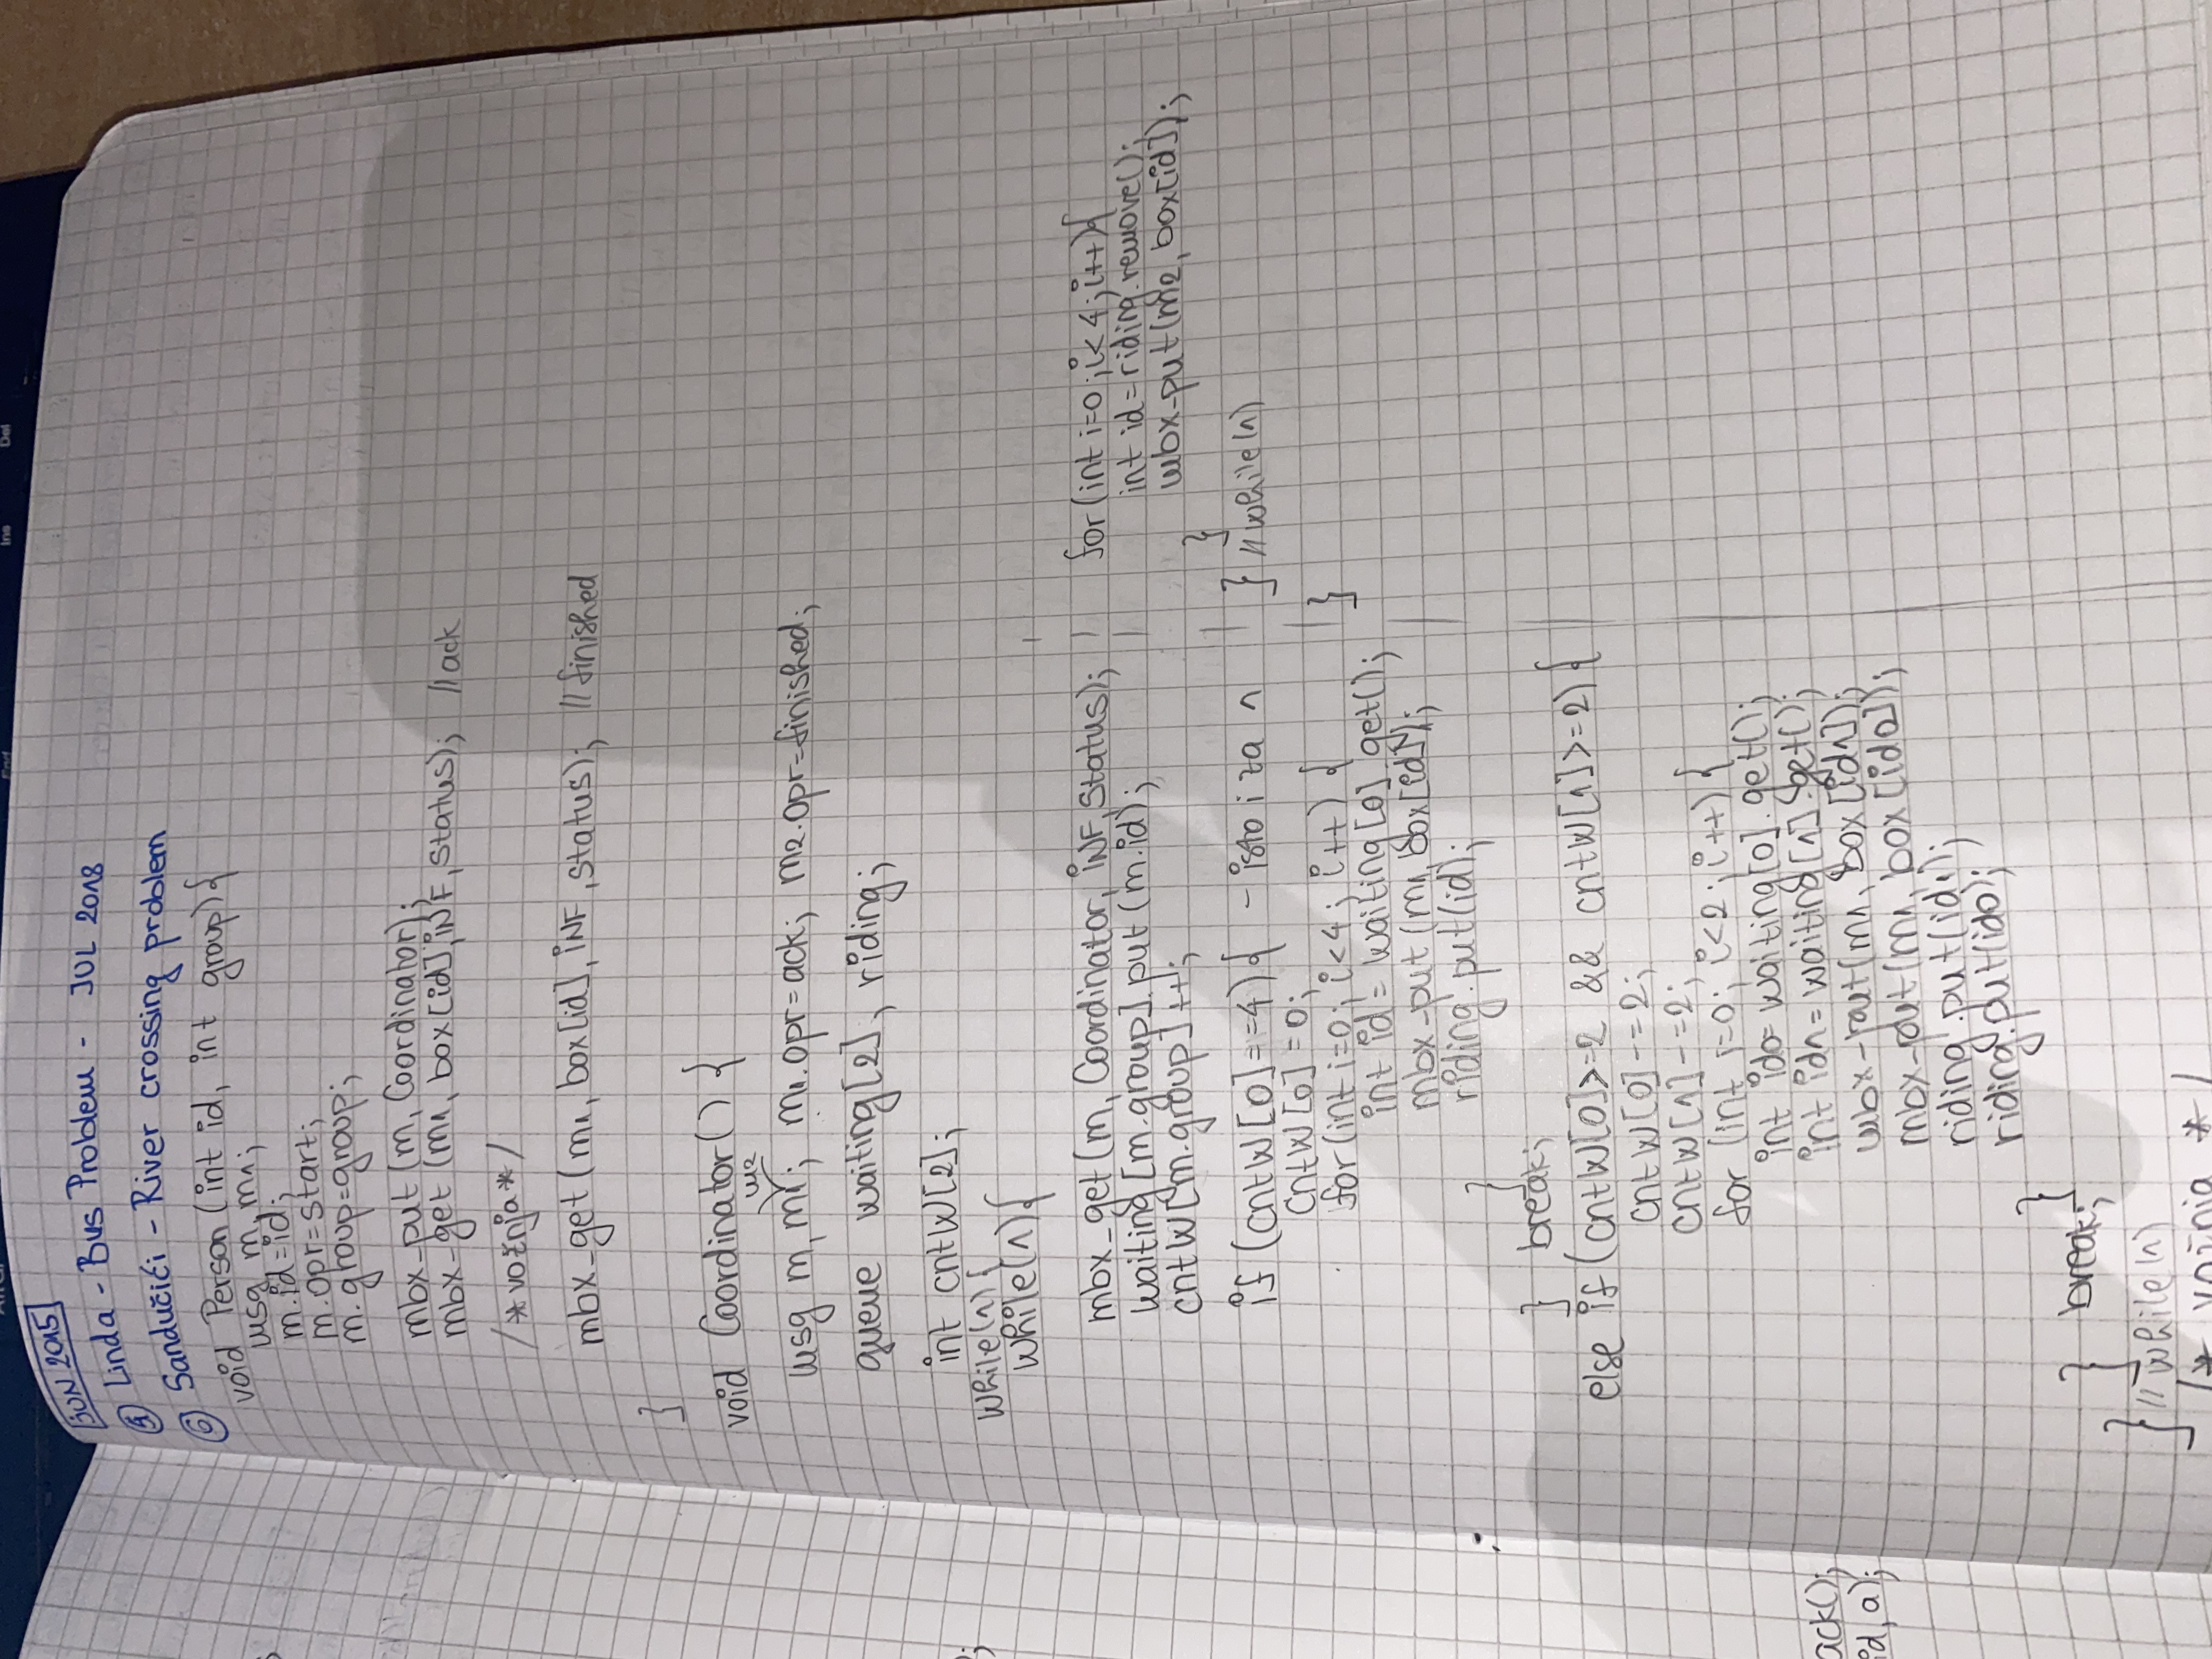 End
Ins
Del
JUN 2015
④ Linda - Bus Problem - JUL 2018
⑥ Sandučići - River crossing problem
void Person (int id, int group){
msg m, m1;
m.id=id;
m.opr=start;
m.group=group;
mbx_put (m, Coordinator);
mbx_get (m1, box[id], iNF, status); //ack
/*vožnja*/
mbx_get (m1, box[id], iNF, status); //finished
}
void Coordinator() {
msg m, m1, m2; m1.opr=ack; m2.opr=finished;
queue waiting[2], riding;
int cntW[2];
while(1){
while(1){
mbx_get(m, Coordinator, iNF, status);
waiting[m.group].put(m.id);
cntW[m.group]++;
if (cntW[0]==4){ - isto i za 1
cntW[0]=0;
for(int i=0; i<4; i++) {
int id = waiting[0].get();
mbx_put (m1, box[id]);
riding.put(id);
}
} break;
else if (cntW[0]>=2 && cntW[1]>=2){
cntW[0]-=2;
cntW[1]-=2;
for (int i=0; i<2; i++) {
int id0= waiting[0].get();
int id1= waiting[1].get();
mbx_put(m1, box[id1]);
mbx_put(m1, box[id0]);
riding.put(id1);
riding.put(id0);
}
} break;
} // while(1)
/* vožnja */
for(int i=0; i<4; i++){
int id=riding.remove();
mbx_put(m2, box[id]);
}
} //while(1)
}
ack();
id, a);